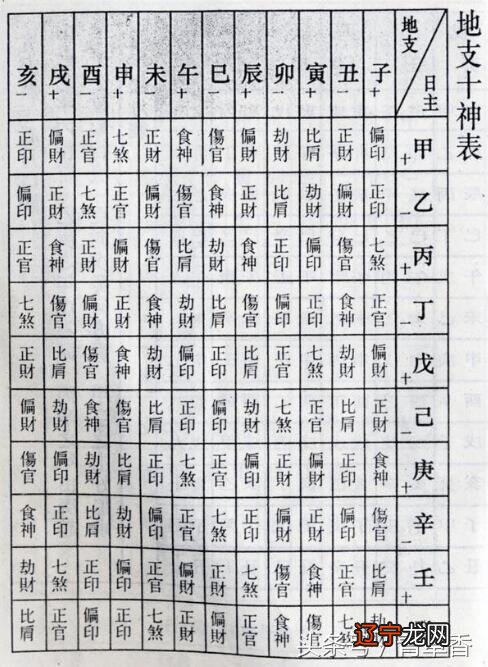 地支十神表
日主 地支
子 丑 寅 卯 辰 巳 午 未 申 酉 戌 亥
+ − + − + − + − + − + −
甲+ 偏印 正財 比肩 劫財 偏財 傷官 食神 正財 七煞 正官 偏財 正印
乙− 正印 偏財 劫財 比肩 正財 食神 傷官 偏財 正官 七煞 正財 偏印
丙+ 七煞 傷官 偏印 正印 食神 劫財 比肩 傷官 偏財 正財 食神 正官
丁− 正官 食神 正印 偏印 傷官 比肩 劫財 食神 正財 偏財 傷官 七煞
戊+ 偏財 劫財 七煞 正官 比肩 正印 偏印 劫財 食神 傷官 比肩 正財
己− 正財 比肩 正官 七煞 劫財 偏印 正印 比肩 傷官 食神 劫財 偏財
庚+ 食神 正印 偏財 正財 偏印 正官 七煞 正印 比肩 劫財 偏印 傷官
辛− 傷官 偏印 正財 偏財 正印 七煞 正官 偏印 劫財 比肩 正印 食神
壬+ 比肩 正官 食神 傷官 七煞 正財 偏財 正官 偏印 正印 七煞 劫財
劫 七 傷官 食神 正官 偏財 正財 七煞 正印 偏印 正官 比肩
头条
辽宁龙网